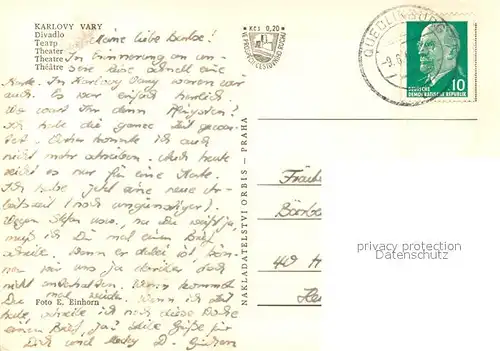 KARLOVY VARY
Divadlo
Театр
Theater
Theatre
Théâtre
Kčs 0,20
Meine liebe
In Erinnerung an un-
sere eine
Karte. In Karlovy Vary waren wir
auch. Es war einfach herrlich
Wo wart Ihr denn Pfingsten?
Ich hab die ganze Zeit gewar-
tet. konnte ich auch
nicht mehr schreiben. Auch heute
reicht es nur für eine Karte.
Ich habe jetzt eine neue Ar-
beitszeit (noch ungünstiger).
Wegen Stefan usw., na Du weißt ja,
muß ich Dir mal einen Brief
schreiben. Wenn er dabei ist, kön-
nen wir uns ja darüber doch
nicht unterhalten. Wann kommst
Du mal wieder. Wenn ich Zeit
habe, schreibe ich noch diese Woche
einen Brief, ja? Viele Grüße für
Dich und
Foto E. Einhorn
NAKLADATELSTVÍ ORBIS - PRAHA
QUEDLINBURG
10
DEUTSCHE
DEMOKRATISCHE REPUBLIK
Fräulein
40 H
privacy protection
Datenschutz